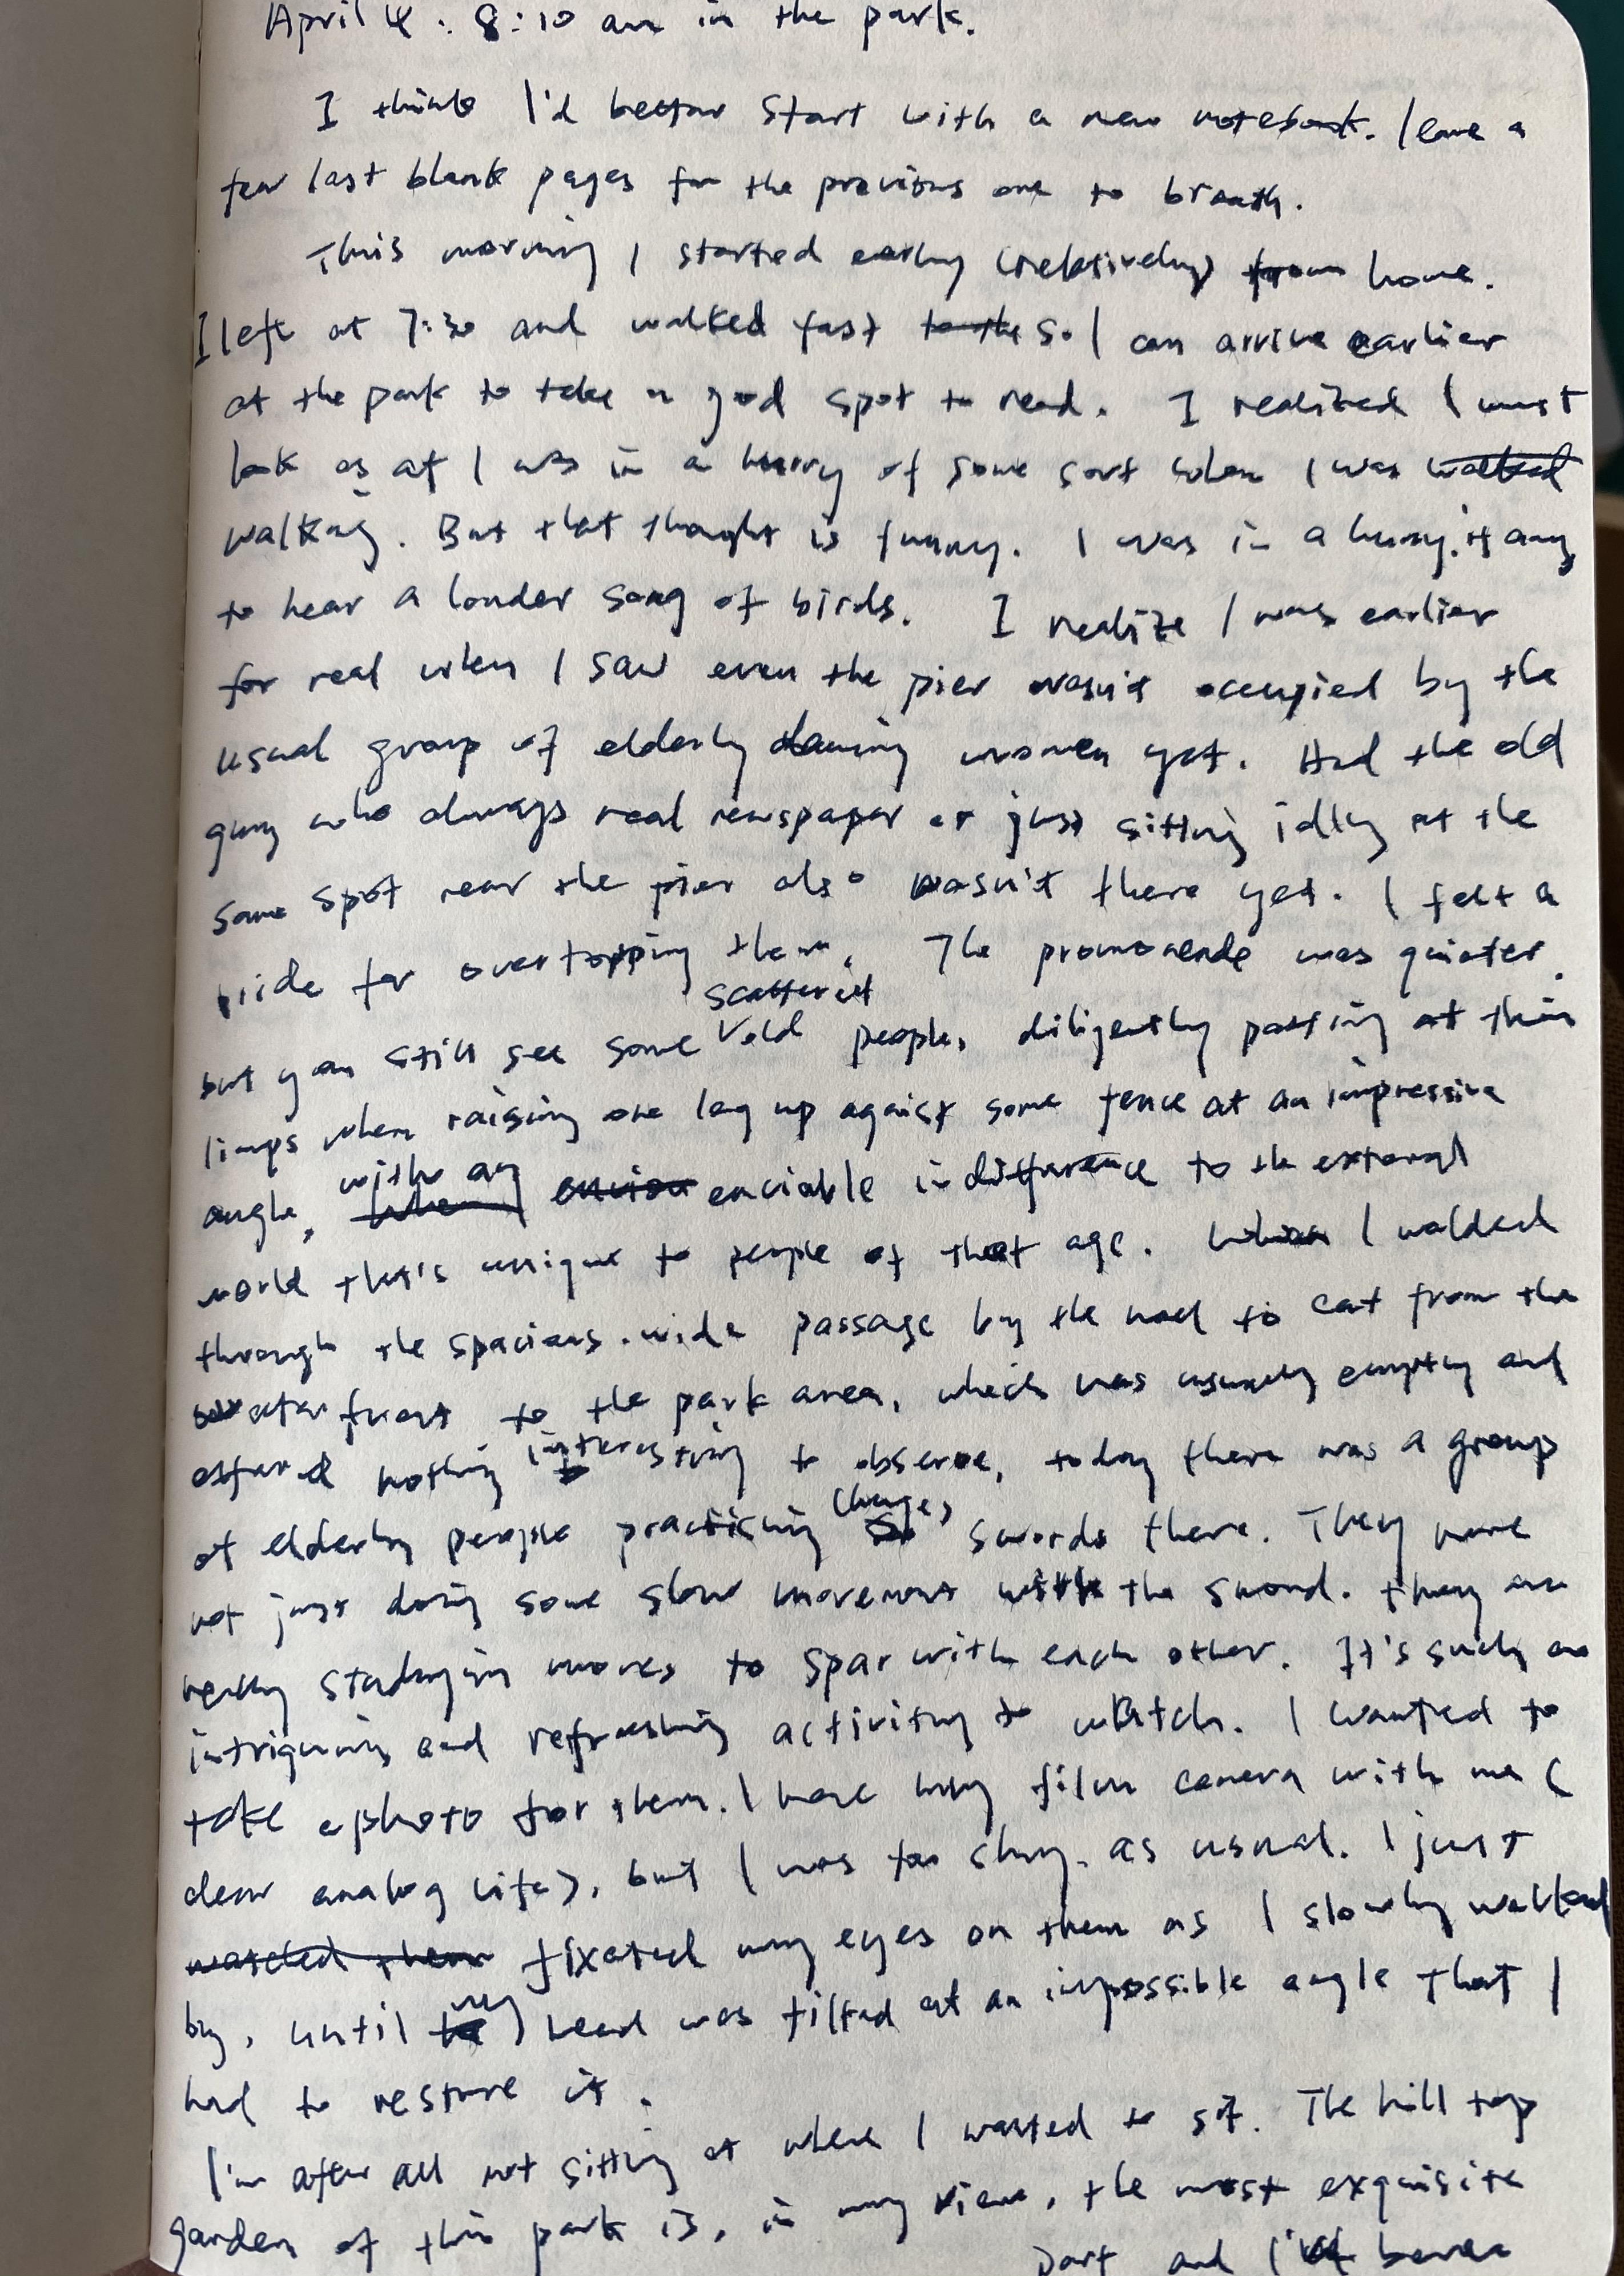 April 4. 8:10 am in the park.
I think I'd better start with a new notebook. leave a
few last blank pages for the previous one to breath.
This morning I started early (relatively) from home.
I left at 7:30 and walked fast to the so I can arrive earlier
at the park to take a good spot to read. I realized I must
look as if I was in a hurry of some sort when I was walked
walking. But that thought is funny. I was in a hurry, if any
to hear a louder song of birds. I realize I was earlier
for real when I saw even the pier wasn't occupied by the
usual group of elderly dancing women yet. And the old
guy who always read newspaper or just sitting idly at the
same spot near the pier also wasn't there yet. I felt a
pride for overtopping them. The promenade was quieter,
but you still see some scattered old people, diligently patting at their
limps when raising one leg up against some fence at an impressive
angle, with an enviable indifference to the external
world that's unique to people of that age. When I walked
through the spacious wide passage by the to cut from the
waterfront to the park area, which was usually empty and
offered nothing interesting to observe, today there was a group
of elderly people practicing (huge) swords there. They were
not just doing some slow movement with the sword. They are
really studying moves to spar with each other. It's such an
intriguing and refreshing activity to watch. I wanted to
take a photo for them. I have my film camera with me (
dear analog life), but I was too shy, as usual. I just
watched them fixated my eyes on them as I slowly walked
by, until my head was tilted at an impossible angle that I
had to restore it.
I'm after all not sitting at where I wanted to sit. The hill top
garden of this park is, in my view, the most exquisite
part and I've